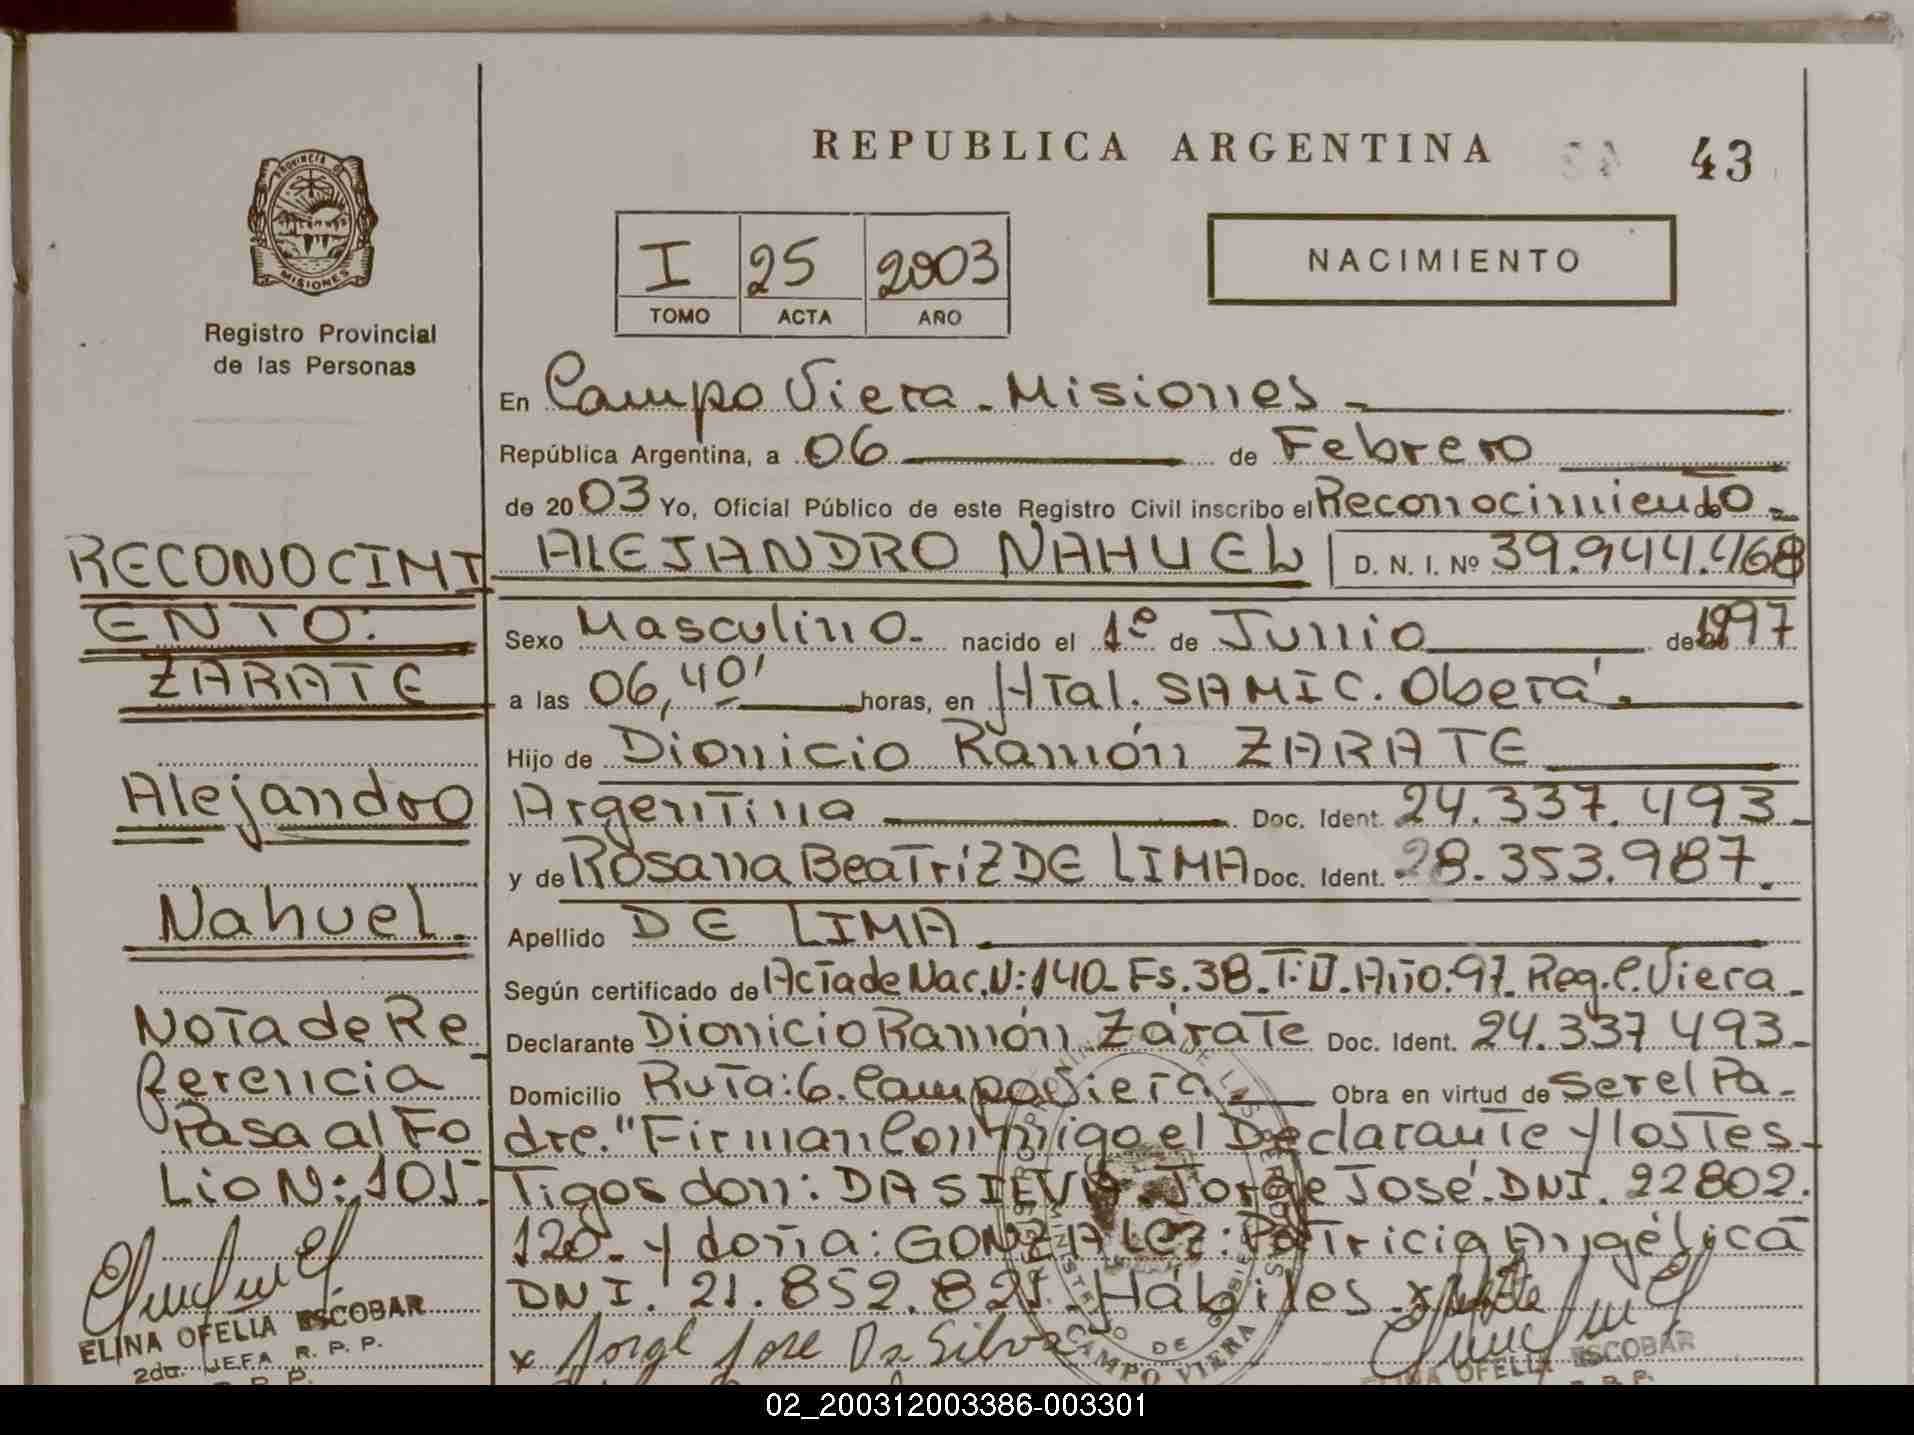 REPUBLICA ARGENTINA
43
PROVINCIA DE
MISIONES
Registro Provincial
de las Personas
I 25 2003
TOMO ACTA AÑO
NACIMIENTO
En Campo Viera - Misiones -
República Argentina, a 06 de Febrero
de 2003 Yo, Oficial Público de este Registro Civil inscribo el Reconocimiento de
ALEJANDRO NAHUEL D. N. I. Nº 39.944.468
Sexo Masculino - nacido el 1º de Junio de 1997
a las 06,40' horas, en Htal. SAMIC. Oberá.
Hijo de Dionicio Ramón ZARATE
Argentina Doc. Ident. 24.337.493-
y de Rosana Beatríz DE LIMA Doc. Ident. 28.353.987.
Apellido DE LIMA
Según certificado de Acta de Nac. N: 140- Fs. 38. T: II. Año: 97. Reg. C. Viera -
Declarante Dionicio Ramón Zárate Doc. Ident. 24.337 493-
Domicilio Ruta: 6. Campo Viera. Obra en virtud de Ser el Pa-
dre." Firman Conmigo el Declarante y los Tes-
Tigos don: DA SILVA. Jorge José. DNI. 22802.
120- y doña: GONZALEZ: Patricia Angélica
DNI. 21.852.821. Hábiles.
x Jorge Jose Da Silva
RECONOCIMI
ENTO:
ZARATE
Alejandro
Nahuel.
Nota de Re
ferencia
Pasa al Fo
Lio N: 101-
ELINA OFELIA ESCOBAR
2da. JEFA R. P. P.
R. P. P.
CAMPO VIERA
OFELIA ESCOBAR
02_200312003386-003301